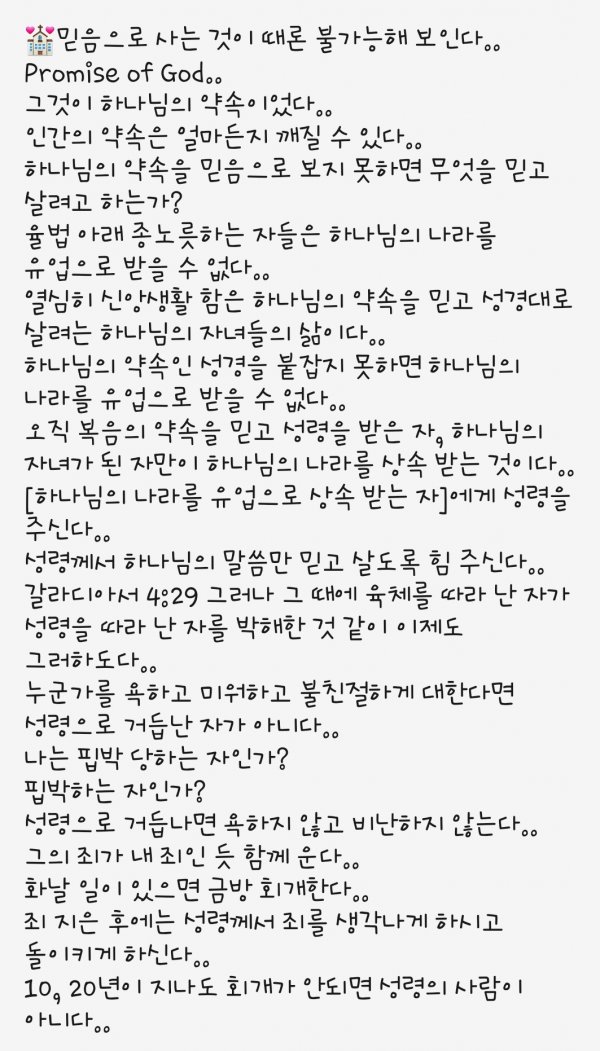 💒믿음으로 사는 것이 때론 불가능해 보인다。。
Promise of God。。
그것이 하나님의 약속이었다。。
인간의 약속은 얼마든지 깨질 수 있다。。
하나님의 약속을 믿음으로 보지 못하면 무엇을 믿고
살려고 하는가?
율법 아래 종노릇하는 자들은 하나님의 나라를
유업으로 받을 수 없다。。
열심히 신앙생활 함은 하나님의 약속을 믿고 성경대로
살려는 하나님의 자녀들의 삶이다。。
하나님의 약속인 성경을 붙잡지 못하면 하나님의
나라를 유업으로 받을 수 없다。。
오직 복음의 약속을 믿고 성령을 받은 자, 하나님의
자녀가 된 자만이 하나님의 나라를 상속 받는 것이다。。
[하나님의 나라를 유업으로 상속 받는 자]에게 성령을
주신다。。
성령께서 하나님의 말씀만 믿고 살도록 힘 주신다。。
갈라디아서 4:29 그러나 그 때에 육체를 따라 난 자가
성령을 따라 난 자를 박해한 것 같이 이제도
그러하도다。。
누군가를 욕하고 미워하고 불친절하게 대한다면
성령으로 거듭난 자가 아니다。。
나는 핍박 당하는 자인가?
핍박하는 자인가?
성령으로 거듭나면 욕하지 않고 비난하지 않는다。。
그의 죄가 내 죄인 듯 함께 운다。。
화날 일이 있으면 금방 회개한다。。
죄 지은 후에는 성령께서 죄를 생각나게 하시고
돌이키게 하신다。。
10, 20년이 지나도 회개가 안되면 성령의 사람이
아니다。。